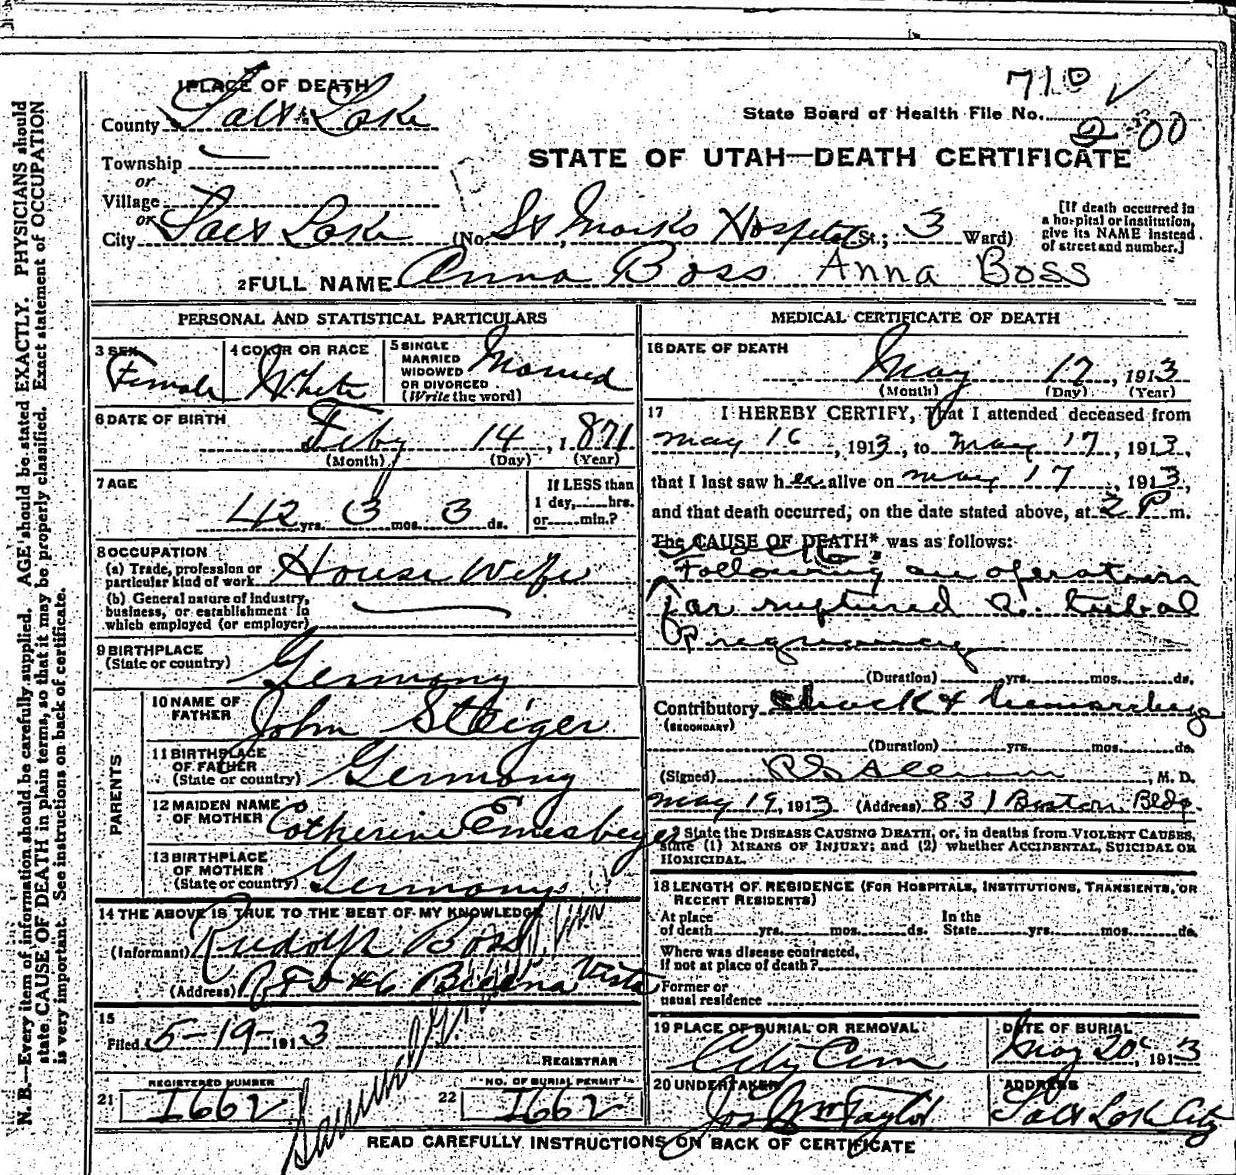 N. B.—Every item of information should be carefully supplied. AGE should be stated EXACTLY. PHYSICIANS should
state CAUSE OF DEATH in plain terms, so that it may be properly classified. Exact statement of OCCUPATION
is very important. See instructions on back of certificate.
1 PLACE OF DEATH
County Salt Lake
Township
or
Village
or
City Salt Lake (No. St Marks Hospital St.; 3 Ward)
710
State Board of Health File No.
200
STATE OF UTAH—DEATH CERTIFICATE
[If death occurred in
a hospital or institution,
give its NAME instead
of street and number.]
2 FULL NAME Anna Boss Anna Boss
PERSONAL AND STATISTICAL PARTICULARS
3 SEX Female
4 COLOR OR RACE White
5 SINGLE
MARRIED
WIDOWED
OR DIVORCED
(Write the word) Married
6 DATE OF BIRTH
Feby 14, 1871
(Month) (Day) (Year)
7 AGE
42 yrs. 3 mos. 3 ds.
If LESS than
1 day, hrs.
or min.?
8 OCCUPATION
(a) Trade, profession or
particular kind of work House Wife
(b) General nature of industry,
business, or establishment in
which employed (or employer)
9 BIRTHPLACE
(State or country) Germany
PARENTS
10 NAME OF
FATHER John Steiger
11 BIRTHPLACE
OF FATHER
(State or country) Germany
12 MAIDEN NAME
OF MOTHER Catherine
13 BIRTHPLACE
OF MOTHER
(State or country) Germany
14 THE ABOVE IS TRUE TO THE BEST OF MY KNOWLEDGE
(Informant) Rudolph Boss
(Address) R F D #6 Buena Vista
15
Filed 5-19-1913
REGISTRAR
REGISTERED NUMBER
21 1662
NO. OF BURIAL PERMIT
22 1662
MEDICAL CERTIFICATE OF DEATH
16 DATE OF DEATH
May 17, 1913
(Month) (Day) (Year)
17 I HEREBY CERTIFY, That I attended deceased from
May 16, 1913, to May 17, 1913,
that I last saw her alive on May 17, 1913,
and that death occurred, on the date stated above, at 2 P m.
The CAUSE OF DEATH* was as follows:
Following an operation
for ruptured R. tubal
Pregnancy
(Duration) yrs. mos. ds.
Contributory Shock & hemorrhage
(SECONDARY)
(Duration) yrs. mos. ds.
(Signed) , M. D.
May 19, 1913 (Address) 831 Boston Bldg.
* State the DISEASE CAUSING DEATH, or, in deaths from VIOLENT CAUSES,
state (1) MEANS OF INJURY; and (2) whether ACCIDENTAL, SUICIDAL OR
HOMICIDAL.
18 LENGTH OF RESIDENCE (FOR HOSPITALS, INSTITUTIONS, TRANSIENTS, OR
RECENT RESIDENTS)
At place
of death yrs. mos. ds.
In the
State yrs. mos. ds.
Where was disease contracted,
if not at place of death?
Former or
usual residence
19 PLACE OF BURIAL OR REMOVAL
City Cem
DATE OF BURIAL
May 20, 1913
20 UNDERTAKER
Jos Wm Taylor
ADDRESS
Salt Lake City
READ CAREFULLY INSTRUCTIONS ON BACK OF CERTIFICATE